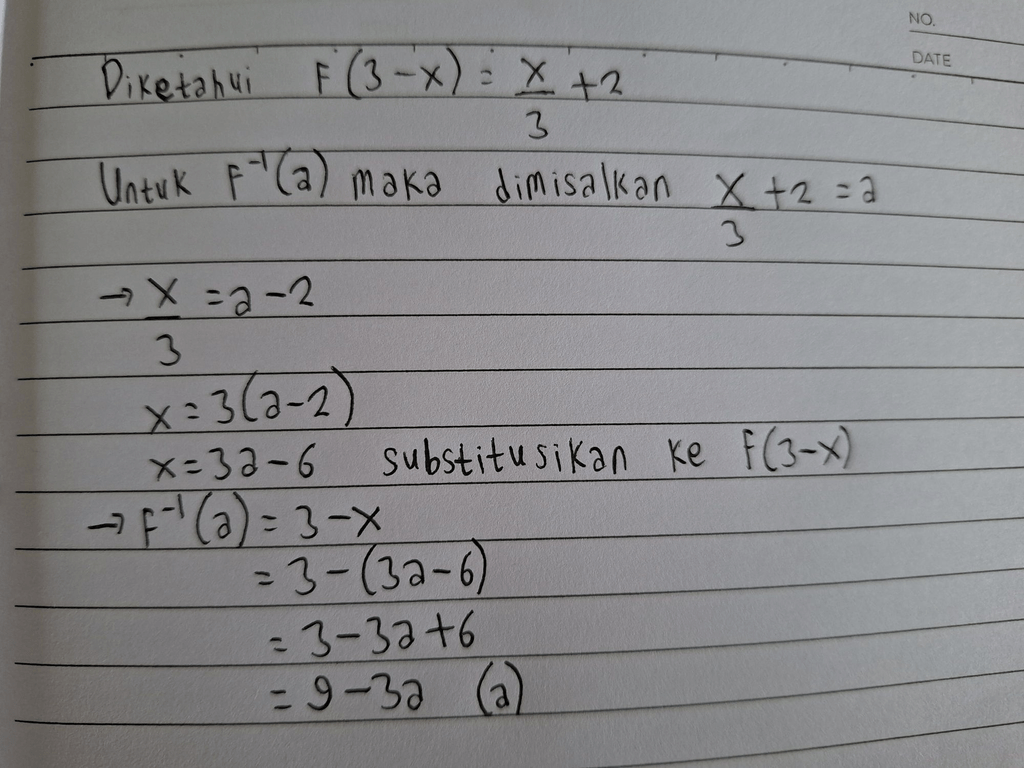 NO.
DATE
Diketahui F(3-x) = x/3 +2
Untuk F⁻¹(a) maka dimisalkan x/3 +2 = a
→ x/3 = a-2
x = 3(a-2)
x = 3a-6 substitusikan ke F(3-x)
→ F⁻¹(a) = 3-x
= 3-(3a-6)
= 3-3a+6
= 9-3a (a)